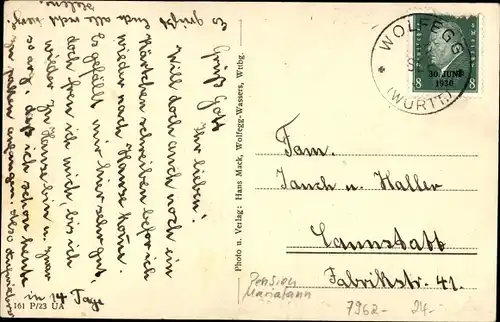 Grüß Gott
Ihr lieben!
Will doch auch noch ein
Kärtchen schreiben bevor ich
wieder nach Hause komm.
Es gefällt mir hier sehr gut,
doch freu ich mich, bis ich
wieder zu Hause bin u. zwar
so arg, daß ich schon heute
in 14 Tage
Es grüßt Euch alle recht herzl.
Helene
161 P/23 UA
Photo u. Verlag: Hans Mack, Wolfegg-Wassers, Wttbg.
WOLFEGG
(WÜRTT.)
30. JUNI
1930
8 8
Fam.
Jauch u. Haller
Cannstatt
Fabrikstr. 41.
Pension
Mariatann
7962-
24.-